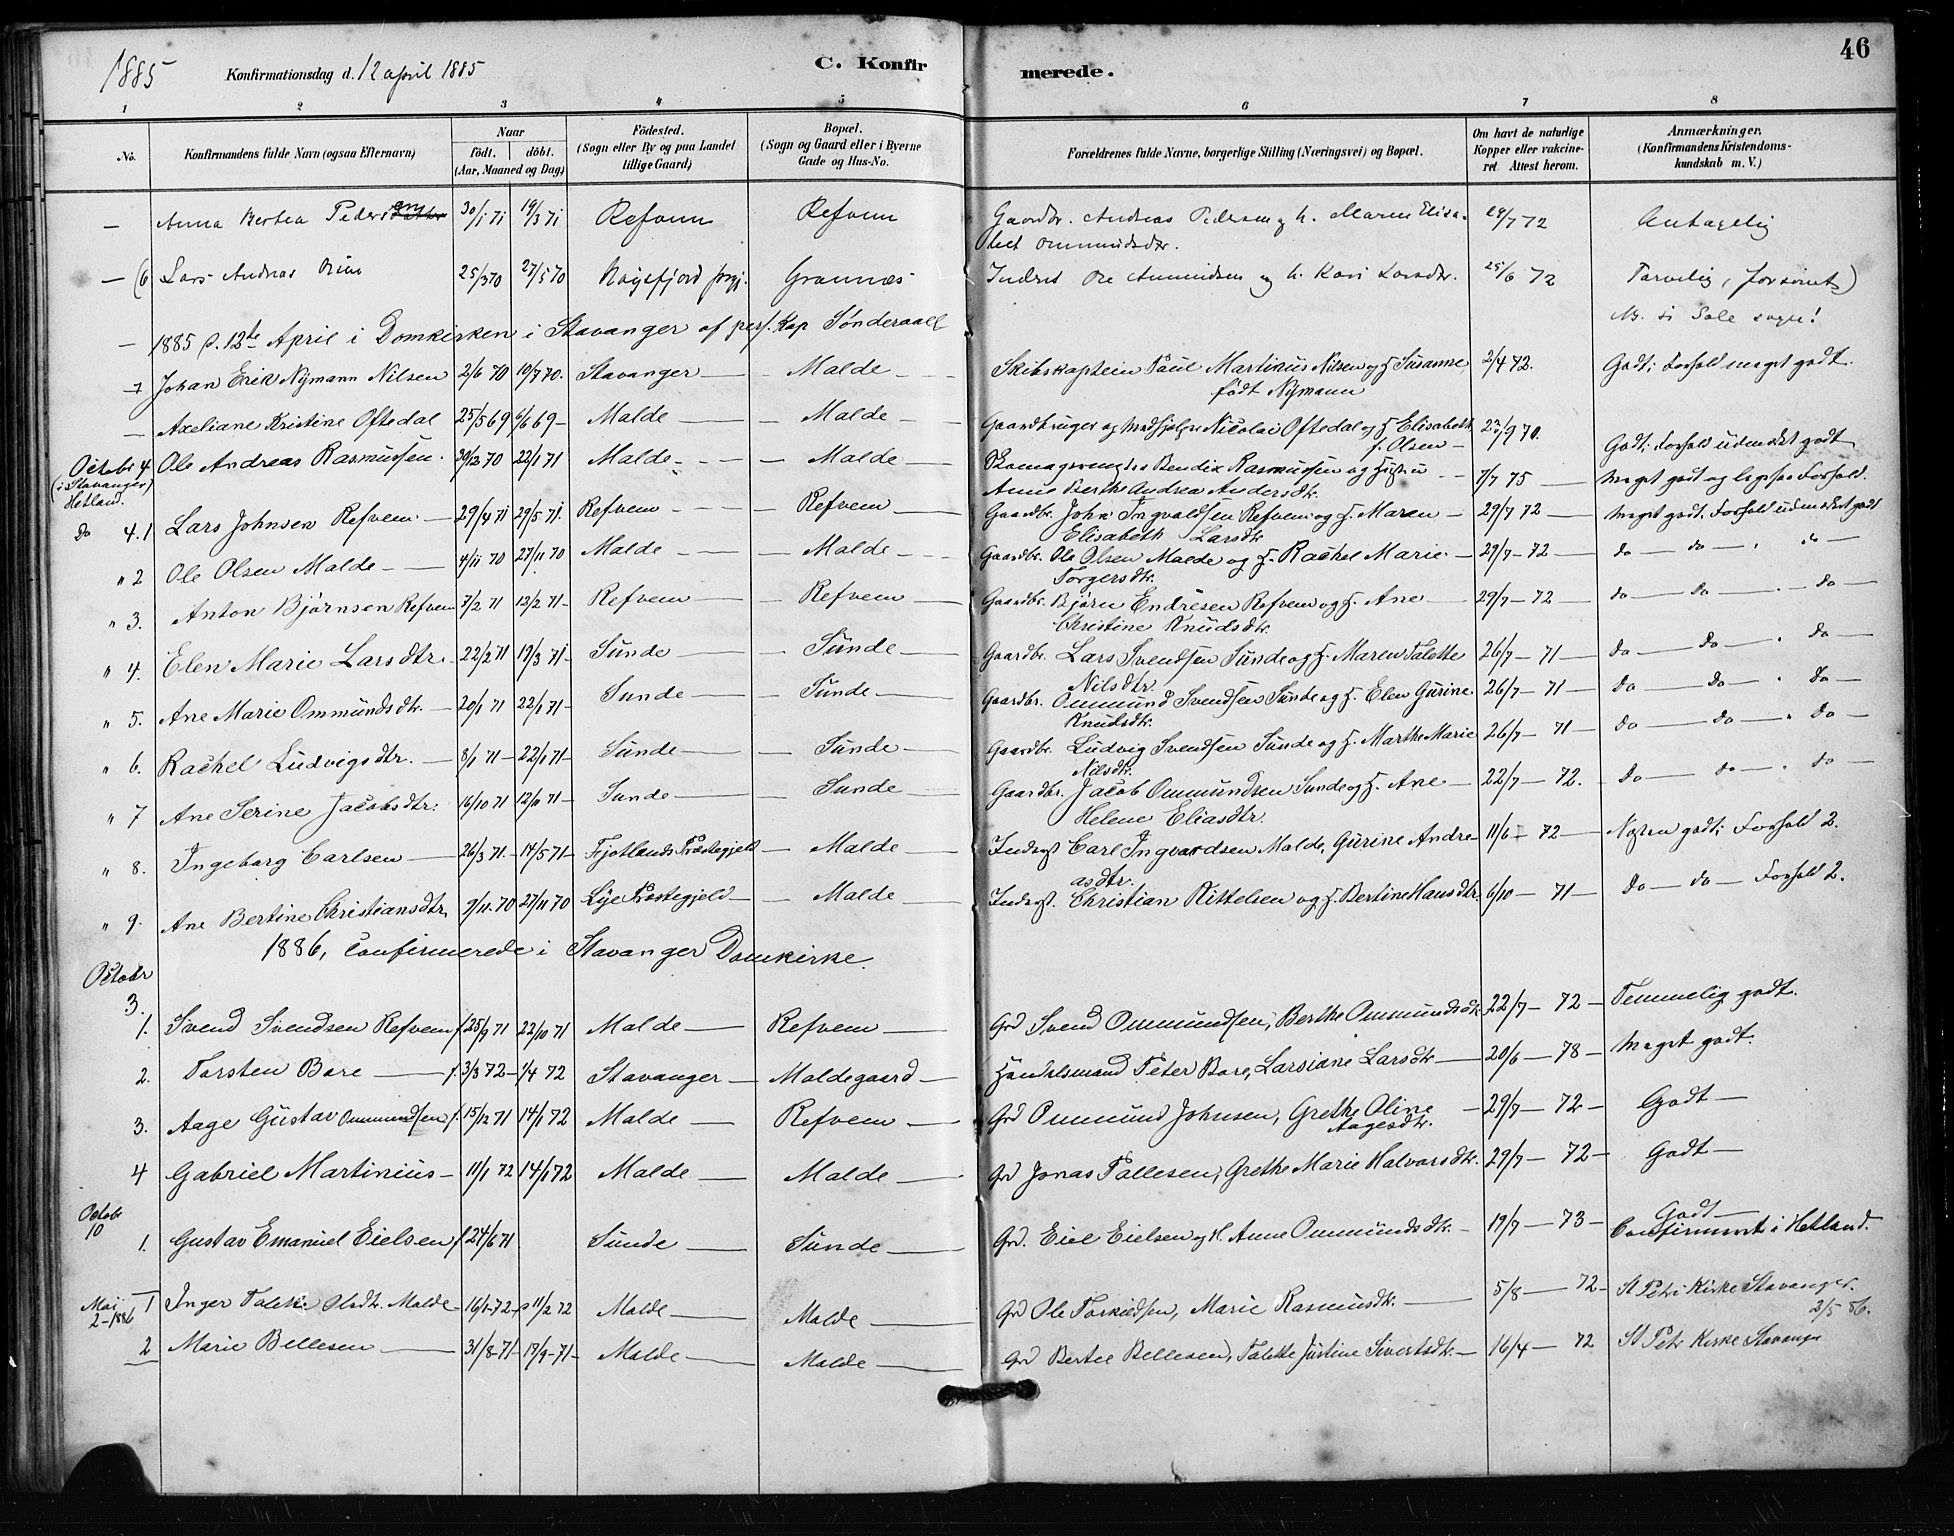 1885 Konfirmationsdag d. 12 april 1885 C. Konfir merede. 46
1 2 3 4 5 6 7 8
No. Konfirmandens fulde Navn (ogsaa Efternavn) Naar født. døbt. (Aar, Maaned og Dag) Fødested. (Sogn eller By og paa Landet tillige Gaard) Bopæl. (Sogn og Gaard eller i Byerne Gade og Hus-No. Forældrenes fulde Navne, borgerlige Stilling (Næringsvei) og Bopæl. Om havt de naturlige Kopper eller vakcineret Attest herom. Anmærkninger. (Konfirmandens Kristendomskundskab m. V.)
— Anna Bertea Peders 30/1 71 19/3 71 Refvem Refvem Gaardbr. Andreas Pedersen og h. Maren Elisa-
bet Ommundsdtr. 29/7 72 Antagelig
— (6 Lars Andreas 25/3 70 27/5 70 Høgsfjord prgj. Grannæs Inderst Ole Ammundsen og h. Kari Larsdtr. 25/6 72 Tarvelig,
— 1885 d. 12te April i Domkirken i Stavanger af pers. Kap Sønderaall
Nb. til Sole sogn!
Johan Erik Nymann Nilsen 2/6 70 10/7 70. Stavanger — Malde — Skibskaptein Paul Martinus Nilsen og H. Susanne
født Nymann 2/4 72. Godt; Forhold meget godt.
— Axeliane Kristine Oftedal 25/5 69 6/6 69 — Malde — Malde — Gaardbruger og Nicolai Oftedal og H. Elisabeth
f. Olsen — 22/9 70. Godt; Forhold udmerket godt
Octobr 4 (i Stavanger) Hetland. Ole Andreas Rasmussen. 20/12 70 22/1 71 Malde — Malde — Bendix Rasmussen og Hustru
Anne Berthe Andrea Andersdtr. 7/7 75 — Meget godt og Forhold.
Do 4. 1 Lars Johnsen Refvem — 29/4 71 29/5 71. Refvem — Refvem — Gaardbr. John Ingvaldsen Refvem og H. Maren —
Elisabeth Larsdtr 29/7 72 — Meget godt. Forhold udmerket godt
" 2 Ole Olsen Malde — 4/11 70 27/11 70 Malde — Malde — Gaardbr. Ole Olsen Malde og H. Rachel Marie. —
Torgersdtr. 29/7 — 72 — do — do — do —
" 3. Anton Bjørnsen Refvem 7/2 71 12/2 71 — Refvem — Refvem — Gaardbr. Bjørn Endresen Refvem og H. Ane —
Christine Knudsdtr. 29/7 — 72 — do — do — do —
" 4. Elen Marie Larsdtr. 22/2 71 19/3 71 — Sunde — Sunde — Gaardbr. Lars Svendsen Sunde og H. Maren Talette
Nilsdtr. 26/7 — 71 — do — do — do —
" 5. Ane Marie Ommundsdtr. — 20/1 71 22/1 71 — Sunde — Sunde — Gaardbr. Ommund Svendsen Sunde og H. Elen Gurine
Knudsdtr. 26/7 — 71 — do — do — do —
" 6. Rachel Ludvigsdtr. — 8/1 71 — 22/1 71 — Sunde — Sunde — Gaardbr. Ludvig Svendsen Sunde og H. Marthe Marie
Nilsdtr. 26/7 — 71 do — do — do —
" 7 Ane Serine Jacobsdtr. 16/10 71 12/11 71 — Sunde — Sunde — Gaardbr. Jacob Ommundsen Sunde og H. Ane —
Helene Eliasdtr. 22/7 — 72. do — do — do —
" 8. Ingeborg Carlsen — 26/3 71 — 14/5 71 — Fjotlands Præstegjeld — Malde — Inderst Carl Ingvardsen Malde, Gurine Andre-
asdtr. 11/6 — 72 — Næsten godt; Forhold 2.
" 9. Ane Bertine Christiansdtr 9/11 70 27/11 70 Lye Præstegjeld — Malde — Inderst. Christian Kittelsen og H. Bertine Hansdtr. 6/10 — 71 — do — do — Forhold 2.
1886, Confirmerede i Stavanger Domkirke.
Octobr
3.
1. Svend Svendsen Refvem f 25/9 71 22/10 71 Malde — Refvem — Grd Svend Ommundsen, Berthe Ommundsdtr 22/7 — 72 — Temmelig godt.
2. Torsten Bore — f. 3/3 72 — 1/4 72 Stavanger — Maldegaard — Handelsmand Peter Bore, Larsiane Larsdtr — 20/6 — 78 — Meget godt.
3. Aage Gustav Ommundsen f. 15/12 71 14/1 72 Malde — Refvem — Grd Ommund Johnsen, Grethe Oline
Aagesdtr. — 29/7 — 72 — Godt —
4 Gabriel Martinius — 11/1 72 14/1 72 Malde — Malde — Grd Jonas Tallesen, Grethe Marie Halvorsdtr. 29/7 — 72 — Godt —
Octobr 10
1. Gustav Emanuel Eielsen f 24/6 71 Sunde — Sunde — Grd. Eiel Eielsen og H. Anne Ommundsdtr. — 19/7 — 73 — Godt —
Confirmert i Hetland.
Mai 2 — 1886 1 Inger Talette Olsdtr. Malde — 16/1 72 11/2 72 Malde — Malde — Grd Ole Torkildsen, Marie Rasmusdtr. — 5/8 — 72 — St Petri Kirke Stavanger.
2/5 86.
2 Marie Bellesen — 31/8 71 — 17/9 71 — Malde — Malde — Grd Bertel Bellesen, Talette Justine Sivertsdtr. — 16/4 — 72 St Petr Kirke Stavange